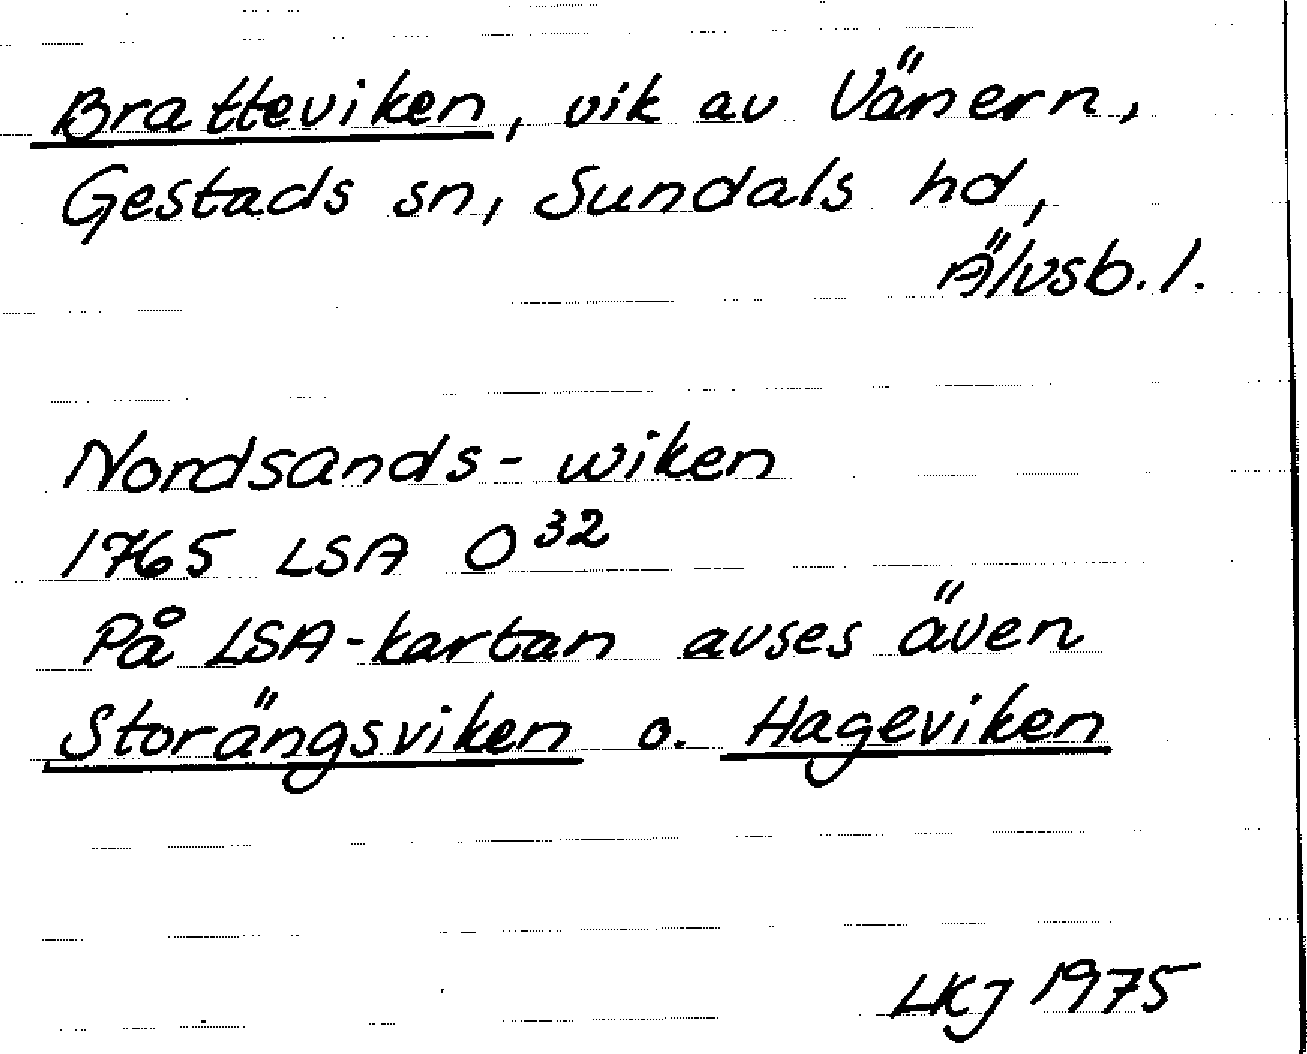 Bratteviken, vik av Vänern,
Gestads sn, Sundals hd,
Älvsb. l.
Nordsands-wiken
1765 LSA O³²
På LSA-kartan avses även
Storängsviken o. Hageviken
LKJ 1975